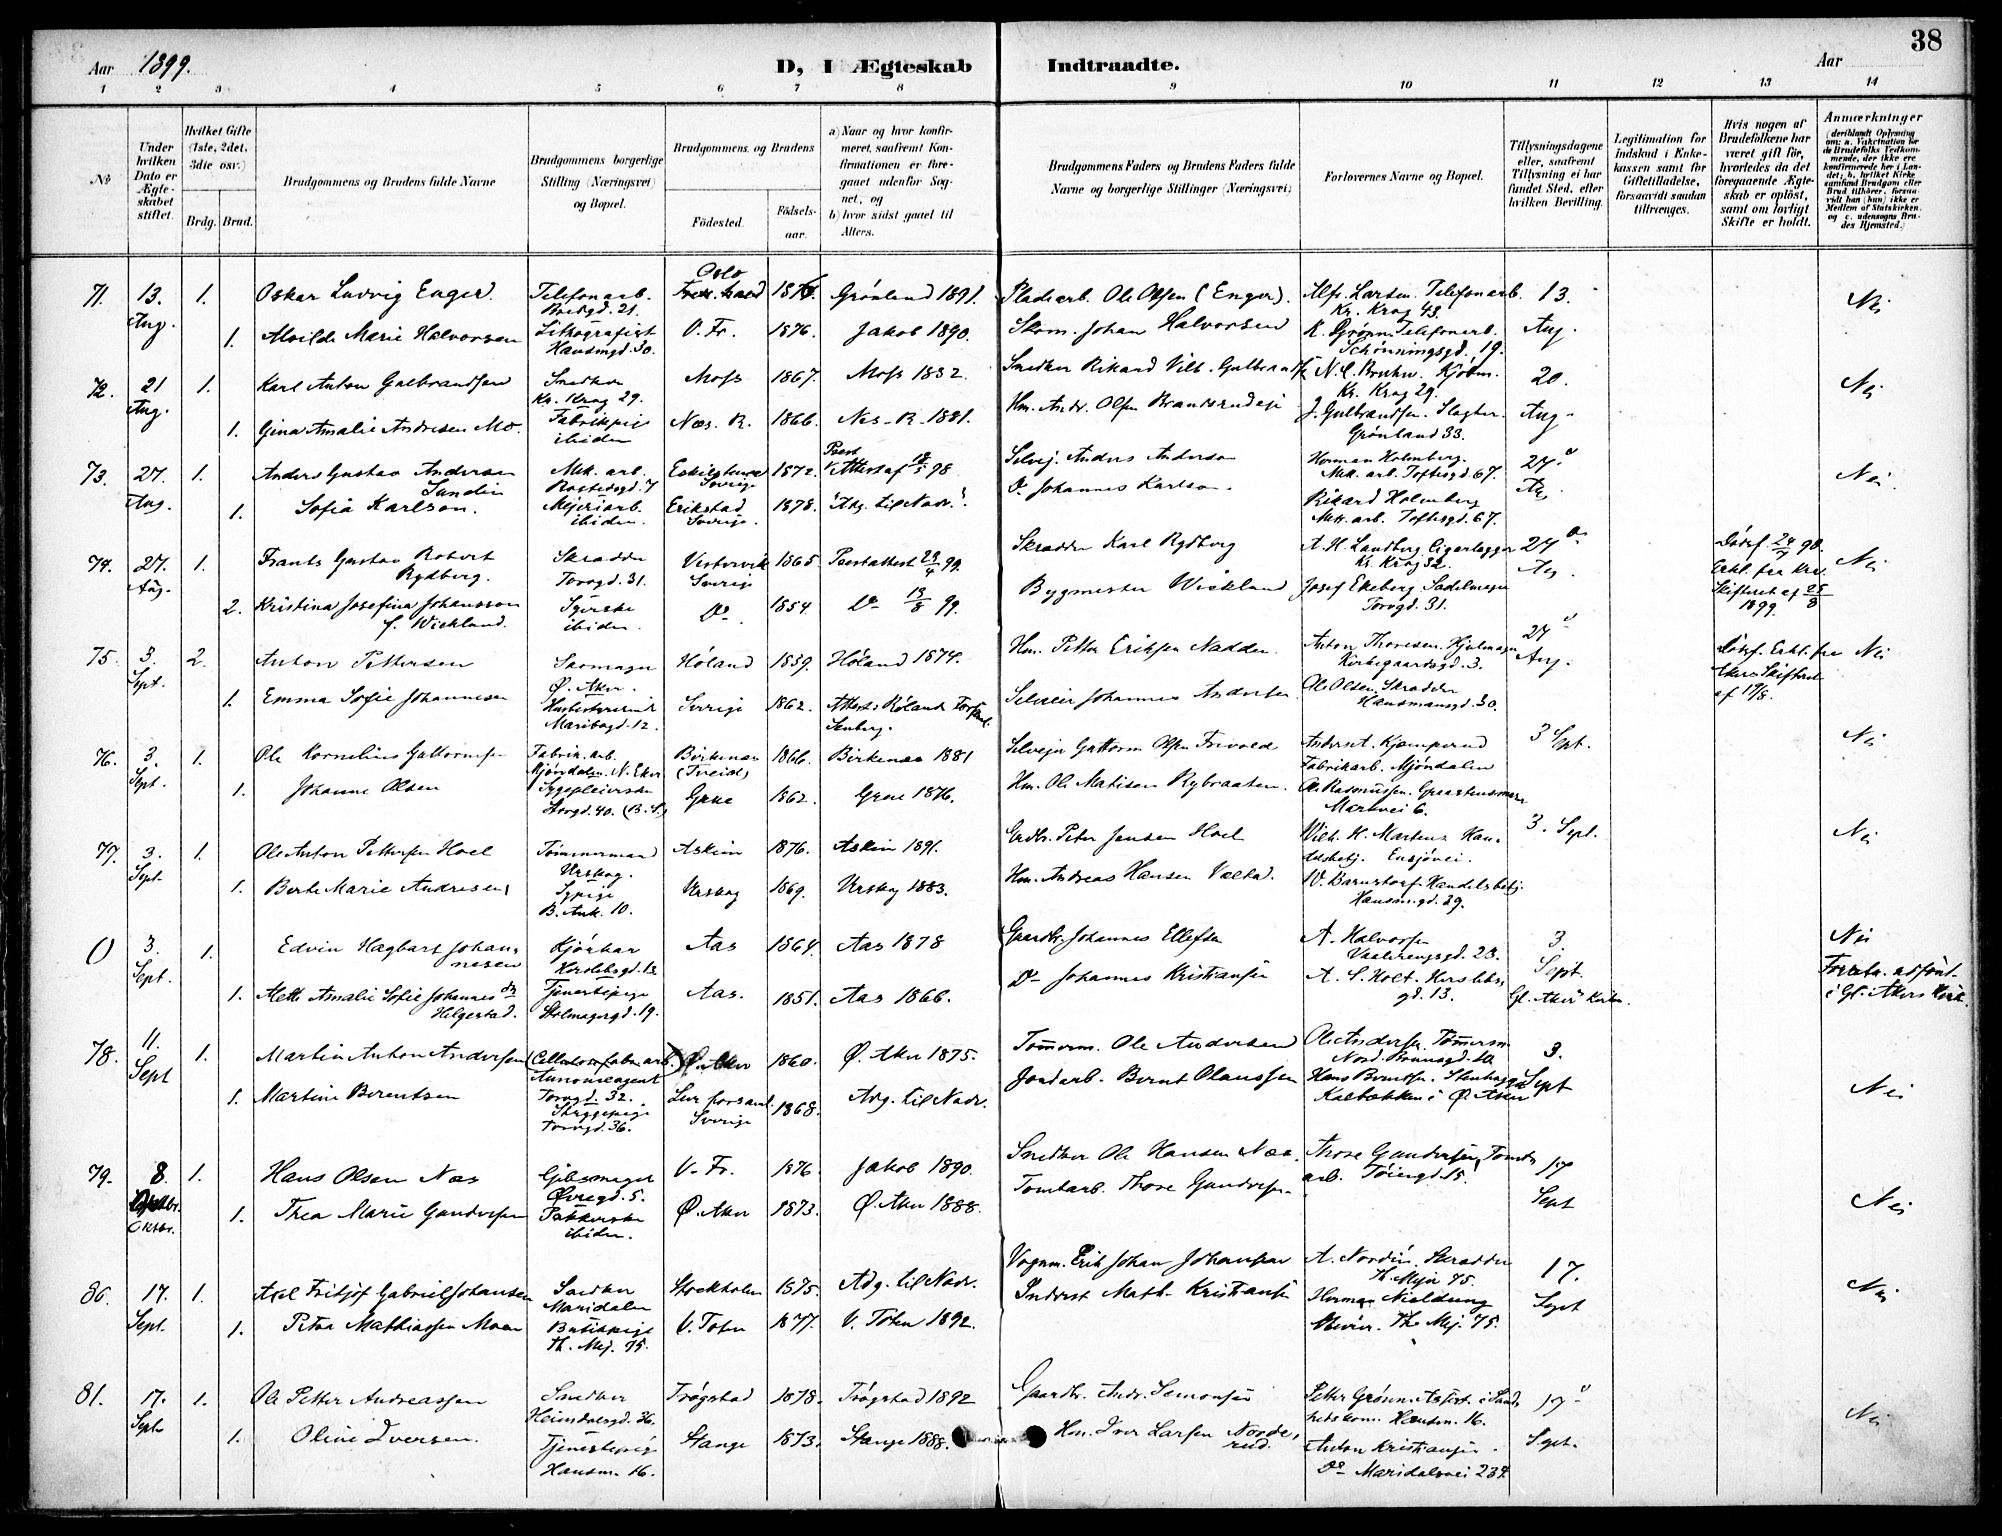 38
Aar 1899. D, I Ægteskab Indtraadte. Aar
1 2 3 4 5 6 7 8 9 10 11 12 13 14
No
Under hvilken Dato er Ægteskabet stiftet.
Hvilket Gifte (1ste, 2det, 3die osv.)
Brdg. Brud.
Brudgommens og Brudens fulde Navne
Brudgommens borgerlige Stilling (Næringsvei) og Bopæl.
Brudgommens og Brudens
Fødested.
Fødselsaar.
a) Naar og hvor konfirmeret, saafremt Konfirmationen er foregaaet udenfor Sognet, og
b) hvor sidst gaaet til Alters.
Brudgommens Faders og Brudens Faders fulde Navne og borgerlige Stillinger (Næringsvei)
Forlovernes Navne og Bopæl.
Tillysningsdagene eller, saafremt Tillysning ei har fundet Sted, efter hvilken Bevilling.
Legitimation for Indskud i Enkekassen samt for Giftetilladelse, forsaavidt saadan tiltrænges.
Hvis nogen af Brudefolkene har været gift før, hvorledes da det foregaaende Ægteskab er opløst, samt om lovligt Skifte er holdt.
Anmærkninger
(deriblandt Oplysning om: a. Vakcination for de Brudefolks Vedkommende, der ikke ere konfirmerede her i Landet; b. hvilket Kirkesamfund Brudgom eller Brud tilhører, forsaavidt han (hun) ikke er Medlem af Statskirken, og c. udensogns Brudes Hjemsted.)
71. 13. Aug. 1. Oskar Ludvig Enger. Telefonarb. Bredgd. 21. Oslo 1876. Grønland 1891. Pladsarb. Ole Olsen (Enger). Alfr. Larsen. Telefonarb. Kr. Krog 43. 13. Aug. Nei
1. Alvilde Marie Halvorsen Litografist Hausmgd. 30. V. Fr. 1876. Jakob 1890. Skom. Johan Halvorsen K. Grønn Telefonarb. Schønningsgd. 19.
72. 21 Aug. 1. Karl Anton Gulbrandsen Snedker Kr. Krog 29. Moss 1867. Moss 1882. Snedker Rikard Vilh. Gulbrands N. C. Bruhn. Kjøbm. Kr. Krog 29. 20. Aug. Nei
1. Gina Amalie Andresen Mo. Fabrikpige ibidem Næs. R. 1866. Nes. R. 1881. Hm. Andr. Olsen J. Gulbrandsen. Slagter. Grønland 33.
73. 27. Aug. 1. Anders Gustav Andersen Sundin Mek. arb. Rostedsgd. 7 Eskilstuna Sverige 1872. Prest Attest af 18/5 98. Selvej. Anders Anderson Herman Holmberg. Mek. arb. Toftesgd. 67. 27. Aug. Nei.
1. Sofia Karlson. Mejeriarb. ibidem. Erikstad Sverige. 1878. "Adg. til Nadv." Do Johannes Karlson. Rikard Holmberg Mek. arb. Toftesgd. 67.
74. 27. Aug. 1. Frants Gustav Robert Rydberg. Skrædder Torvgd. 31. Vestervik Sverige 1865. Prestattest 29/4 99. Skrædder Karl Rydberg A. H. Landberg. Cigarlægger Kr. Krog 32. 27 Aug. Dødsf. 24/7 98. Erkl. fra Kra. Skifteret af 25/8 1899. Nei
2. Kristina Josefina Johansson f. Wickland. Syerske ibidem. Do 1854. Do 13/8 99. Bygmester Wickland Josef Ekeberg Sadelmager Torvgd. 31.
75. 3. Sept. 2. Anton Pettersen Skomager Ø. Aker. Høland 1859. Høland 1874. Hm. Petter Eriksen Nadden. Anton Thoresen. Hjulmager Kirkegaardsgd. 3. 27 Aug. Dødsf. Erkl. fra Akers Skifteret af 19/8. Nei
1. Emma Sofie Johannesen Maribogd. 12. Sverige 1862. Selveier Johannes Andersen Ole Olsen. Skrædder Hausmansgd. 30.
76. 3. Sept. 1. Ole Kornelius Guttormsen Fabrik. arb. Mjøndalen. N. Eker Birkenæs (Tveide) 1866. Birkenæs 1881 Selvejer Guttorm Olsen Frivold Anders Kjæmperud Fabrikarb. Mjøndalen 3 Sept. Nei
1. Johanne Olsen Sygepleierske Storgd. 40. (B. S.) Grue 1862. Grue 1876. Hm. Ole Matisen Rybraaten. Ole Rasmussen. Markvei 6.
77. 3. Sept. 1. Ole Anton Pettersen Hoel Tømmermand Urskog. Askim 1876. Askim 1891. Grdbr. Peter Jensen Hoel Vilh. H. Martens Handelsbetj. Ensjøvei. 3. Sept. Nei
1. Berte Marie Andresen Sypige B. Ank. 10. Urskog 1869. Urskog 1883. Hm. Andreas Hansen W. Barnstorf. Handelsbetj. Hausm.gd. 39.
0 3. Sept. 1. Edvin Hagbart Johannesen Kjørkar Herslebsgd. 13 Aas 1864. Aas 1878 Gaardbr. Johannes Ellefsen A. Halvorsen Vaalerengsgd. 23. 3. Sept. Gl. Aker Kirke. Nei Forretn. udført i Gl. Akers Kirke.
1. Mette Amalie Sofie Johannesdr Helgestad. Tjenestepige Holmagergd. 19. Aas. 1851. Aas 1866. Do Johannes Kristiansen A. S. Holt. Herslebsgd. 13.
78. 11. Sept 1. Martin Anton Andersen (Cellulosefabr. arb.) Annonceagent Torvgd. 32. Ø. Aker 1860. Ø. Aker 1875. Tømm. Ole Andersen Ole Andersen. Tømmerm. Nord. Brunsgd. 10 3. Sept Nei
1. Martine Berentsen Strygepige Torvgd. 36. Sverige 1868. Adg. til Nadv. Jordarb. Bernt Olaussen Hans Berntsen. Stenhugger Kalbakken i Ø. Aker
79. 8. Oktbr. 1. Hans Olsen Næs Gibsmager Øvregd. 5. V. Fr. 1876. Jakob 1890. Snedker Ole Hansen Næs. Thore Gundersen, Tomtearb. Tøiengd. 15. 17 Sept Nei
1. Thea Marie Gundersen Pakkerske ibidem. Ø. Aker 1873. Ø. Aker 1888. Tomtarb. Thore Gundersen.
80. 17. Sept. 1. Axel Fritjof Gabriel Johansen Snedker Maridalen Stockholm 1875. Adg. til Nadv. Vognm. Erik Johan Johanson A. Nordin. Skrædder Th. Mejer 75. 17. Sept Nei
1. Petra Mathiassen Moen Butikpige Th. Mej. 75. V. Toten 1877. V. Toten 1892. Inderst Math. Kristiansen Herman Th. Mej. 75.
81. 17. Sept 1. Ole Petter Andreassen Snedker Heimdalsgd. 36. Trøgstad 1878. Trøgstad 1892 Gaardbr. Andr. Simonsen Petter Grønn. Hausm. 16. 17 Sept. Nei
1. Oline Iversen. Tjenestepige Hausm. 16. Stange 1873. Stange 1888. Hm. Iver Larsen Norderud. Anton Kristiansen Do Maridalsvei 234.